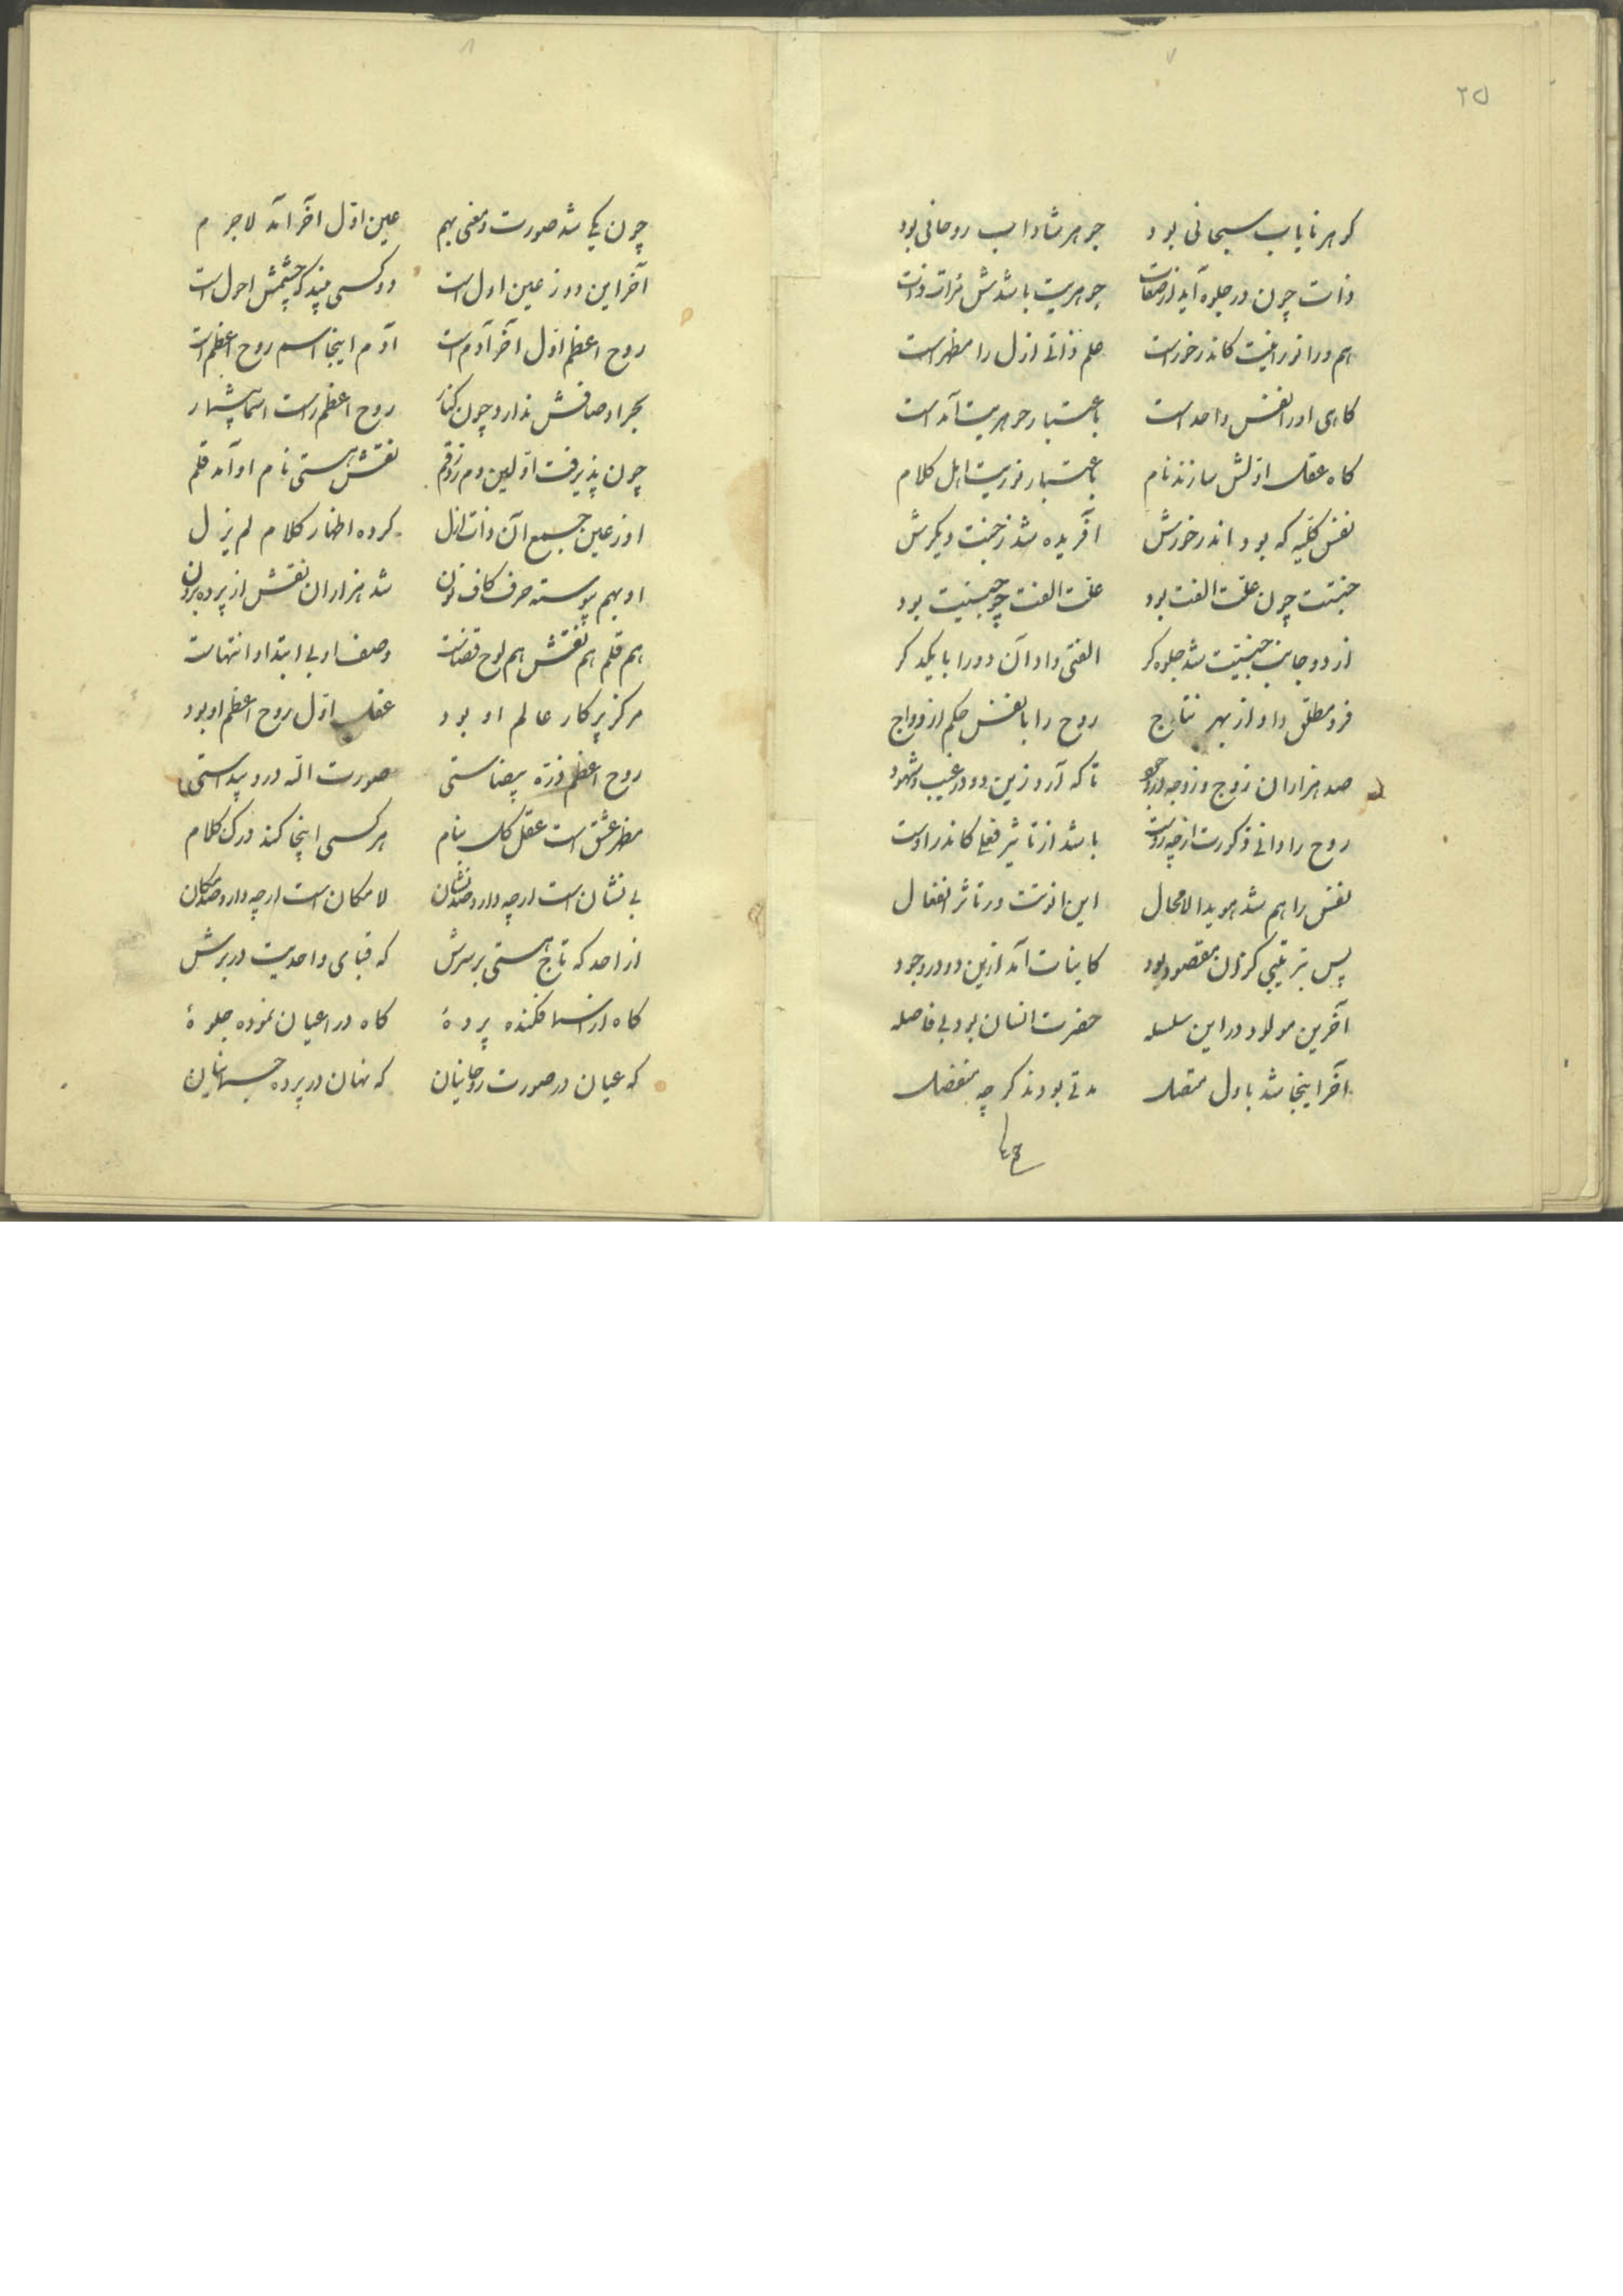 ۲۵
۷
کوهر نایاب سبحانی بود جوهر شاداب روحانی بود
ذات چون در جلوه آید از صفات جوهریت باشدش مرآت ذات
هم ورا نورانیت کاندر خورست علم ذاتی ازل را مظهر است
کاهی او را نفس واحد است باعتبار جوهریت آمد است
کاه عقل اولش سازند نام باعتبار نوریت اهل کلام
نفس کلیه که بود اندر خورش آفریده شد ز جنبت دیکرش
جنبیت چون علت الفت بود علت الفت چو جنسیت بود
از دو جانب جنسیت شد جلوه کر الفتی داد آن دو را با یکدکر
فرد مطلق داد از بهر نتاج روح را با نفس حکم ازدواج
صد هزاران زوج و زوجه در وجود تا که آرد زین دو در غیب و شهود
روح را دانی ذکورت از چه روست باشد از تأثیر فعلی کاندر اوست
نفس را هم شد هویدا لامحال این انوثت در تأثر انفعال
پس بترتیبی کزان مقصود بود کاینات آمد ازین دو در وجود
آخرین مولود در این سلسله حضرت انسان بود بی فاصله
آخر اینجا شد باول متصل مدتی بودند کر چه منفصل
۸
چون یکی شد صورت و معنی بهم عین اول آخر آمد لاجرم
آخر این دور ز عین اول است دو کسی بیند که چشمش احول است
روح اعظم اول آخر آدم است آدم اینجا اسم روح اعظم است
بحر اوصافش ندارد چون کنار روح اعظم راست اسما بیشمار
چون پذیرفت اولین دم زو رقم نقش هستی نام او آمد قلم
او ز عین جمیع آن ذات ازل کرده اظهار کلام لم یزل
او بهم پیوسته حرف کاف و نون شد هزاران نقش از پرده برون
هم قلم هم نقش هم لوح قضاست وصف او بی ابتدا و انتهاست
مرکز پرکار عالم او بود عقل اول روح اعظم او بود
روح اعظم ذره بیضاستی صورت اله درو پیداستی
مظهر عشق است عقل کل بنام هر کسی اینجا کند درک کلام
بی نشان است ار چه دارد صد نشان لامکان است ار چه دارد صد مکان
از احد که تاج هستی بر سرش که قبای واحدیت در برش
کاه از اسما فکنده پردهٔ کاه در اعیان نموده جلوهٔ
که عیان در صورت روحانیان که نهان در پرده جسمانیان